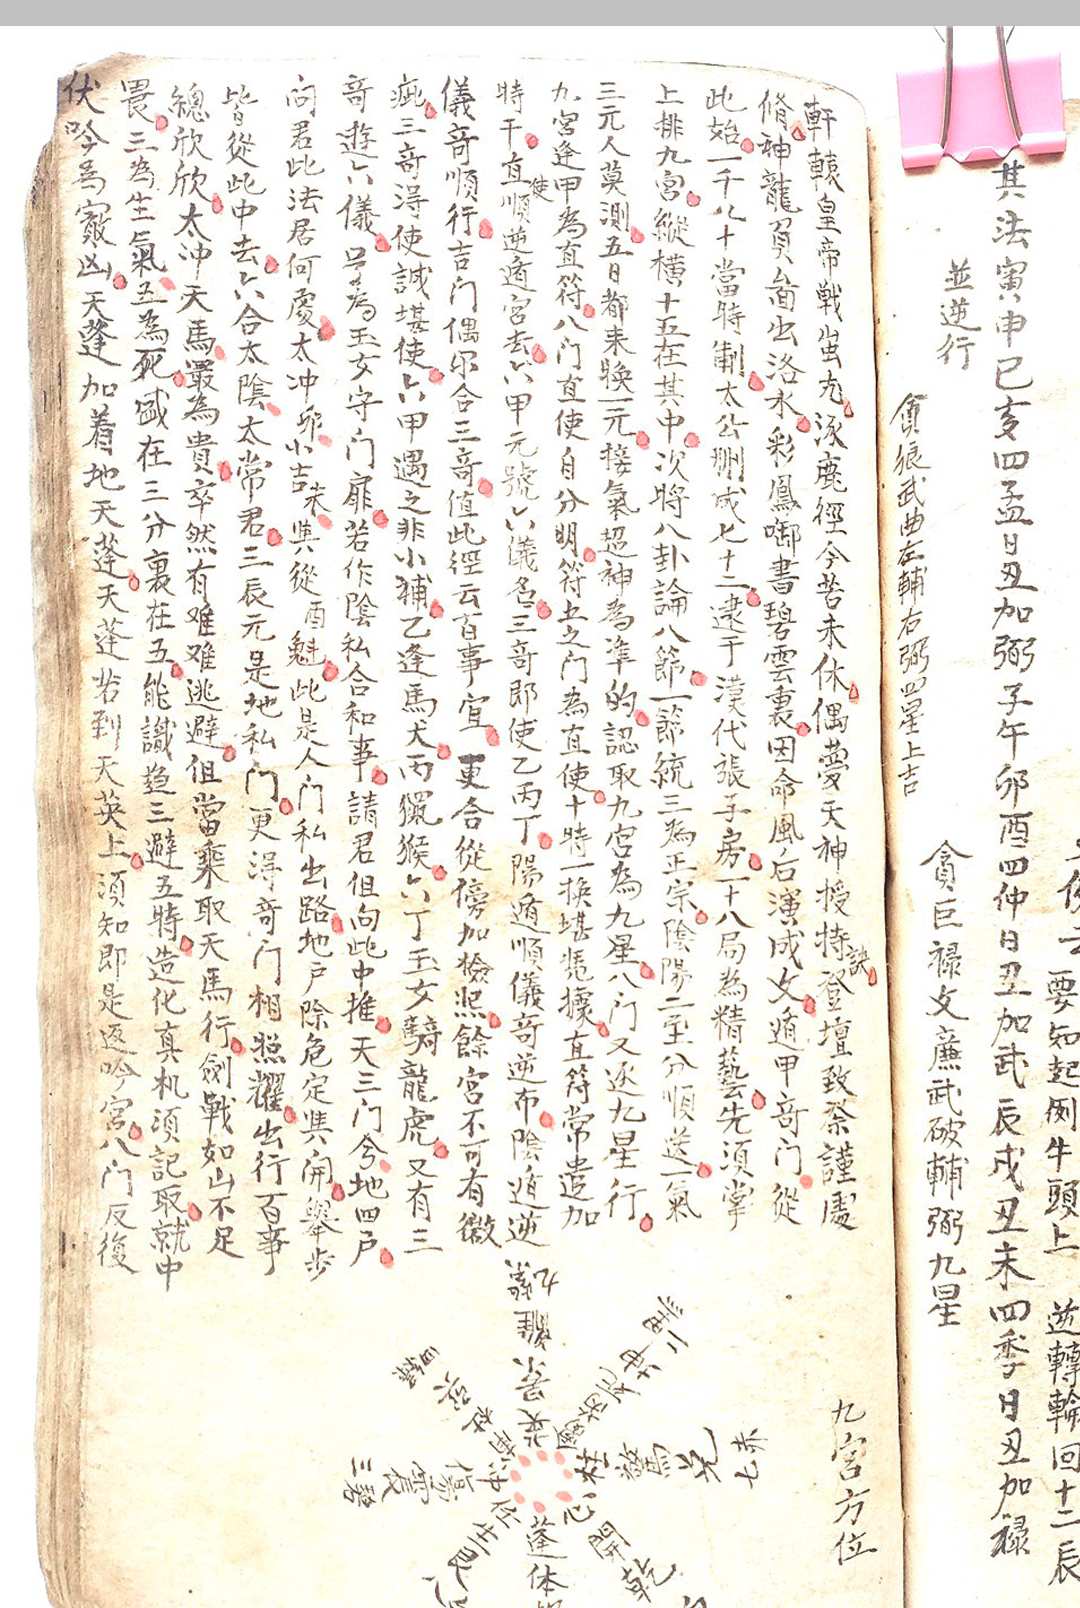 例云 要知起例牛頭上 逆轉輪回十二辰
其法寅申巳亥四孟日丑加弼子午卯酉四仲日丑加武辰戌丑未四季日丑加祿
並逆行
貪巨祿文廉武破輔弼九星
貪狼武曲左輔右弼四星上吉
軒轅皇帝戰蚩尤涿鹿徑今苦未休偶夢天神授持訣登壇致祭謹虔
脩神龍負啚出洛水彩鳳啣書碧雲裏因命風后演成文遁甲奇門從
此始一千八十當時制太公刪成七十二逮于漢代張子房一十八局為精藝先須掌
上排九宮縱橫十五在其中次將八卦論八節一節統三為正宗陰陽二至分順逆一氣
三元人莫測五日都来換一元接氣超神為準的認取九宮為九星八门又逐九星行
九宮逢甲為直符八门直使自分明符上之门為直使十特一換堪凭據直符常遣加
特干直使順逆遁宮去六甲元號六儀名三奇即使乙丙丁陽遁順儀奇逆布陰遁逆
儀奇順行吉门偶尔合三奇值此徑云百事宜更合從傍加檢照餘宮不可有微
疵三奇淂使誠堪使六甲遇之非小補乙逢馬犬丙獵猴六丁玉女騎龍虎又有三
奇遊六儀号為玉女守门扉若作陰私合和事請君但向此中推天三门兮地四户
问君此法居何處太冲卯小吉未與從酉魁此是人门私出路地户除危定與開舉步
皆從此中去六合太陰太常君三辰元是地私门更淂奇门相照耀出行百事
總欣欣太沖天馬最為貴卒然有难难逃避但當乘取天馬行劍戰如山不足
畏三為生氣五為死盛在三分裏在五能識趋三避五特造化真机須記取就中
伏吟為㝡凶天蓬加着地天蓬天蓬若到天英上須知即是返吟宮八门反復
九宮方位
七赤 兌 驚 柱
乾 開 心
蓬 休
艮 生 任
三碧 震 傷 冲
二 坤 死 芮
九 離 景 英